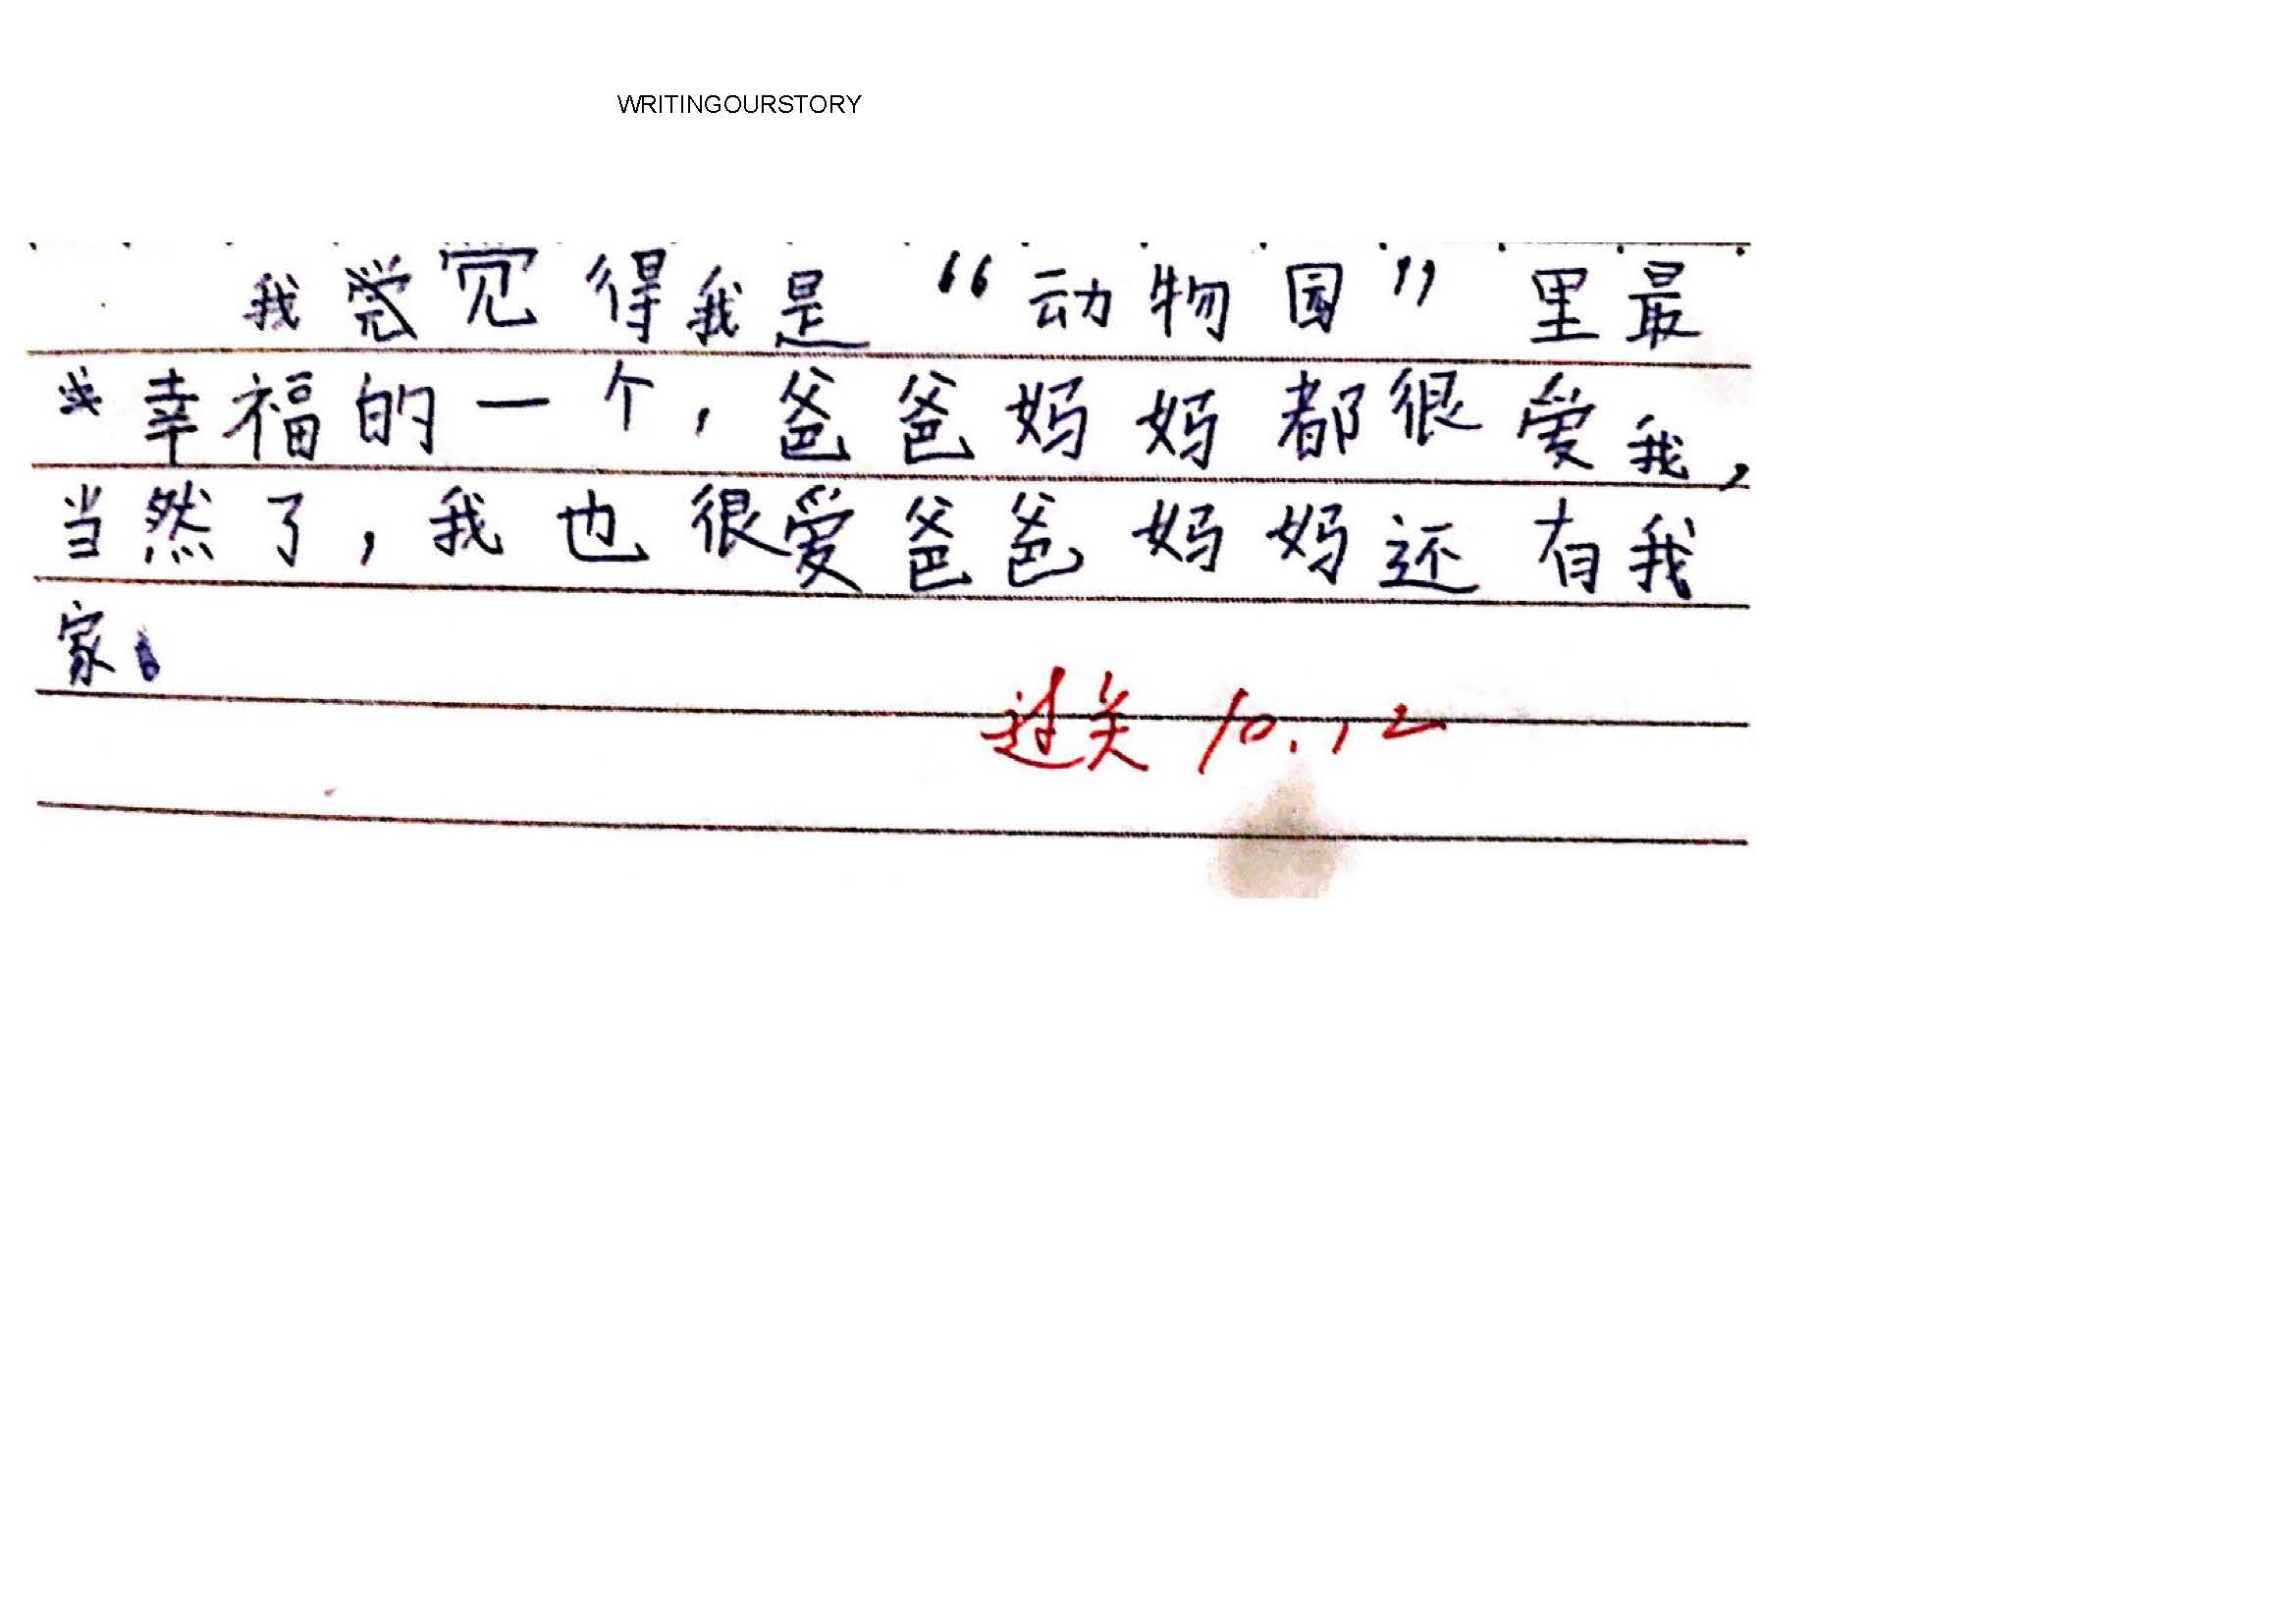 WRITINGOURSTORY
我觉得我是“动物园”里最
幸福的一个，爸爸妈妈都很爱我，
当然了，我也很爱爸爸妈妈还有我
家。
过关 10.12